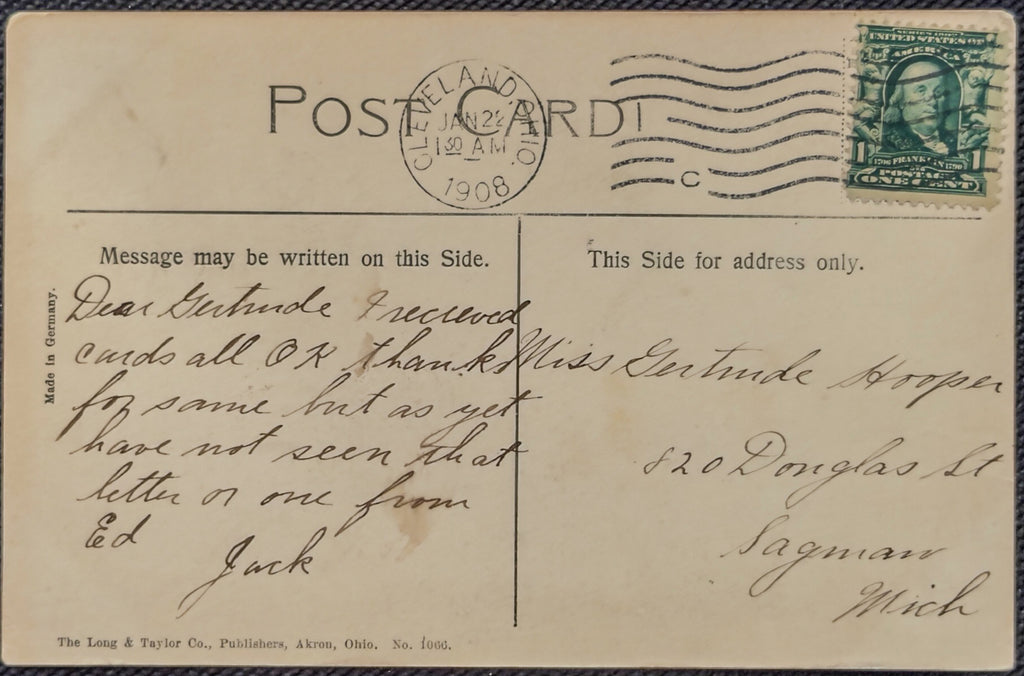 POST CARD
CLEVELAND, OHIO.
JAN 22
1 30 AM
1908
C
SERIES 1902
UNITED STATES OF
AMERICA
1706 FRANKLIN 1790
POSTAGE
1 1
ONE CENT
Message may be written on this Side.
Made in Germany.
Dear Gertrude I recieved
cards all OK thanks
for same but as yet
have not seen that
letter or one from
Ed
Jack
The Long & Taylor Co., Publishers, Akron, Ohio. No. 1066.
This Side for address only.
Miss Gertrude Hooper
820 Donglas St
Sagman
Mich